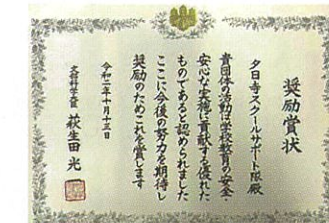 奨励賞状
夕日寺スクールサポート隊殿
貴団体の活動は学校教育の安全・
安心な実施に貢献する優れた
ものであると認められました
ここに今後の努力を期待し
奨励のためこれを賞します
令和二年十月十三日
文部科学大臣 萩生田 光一